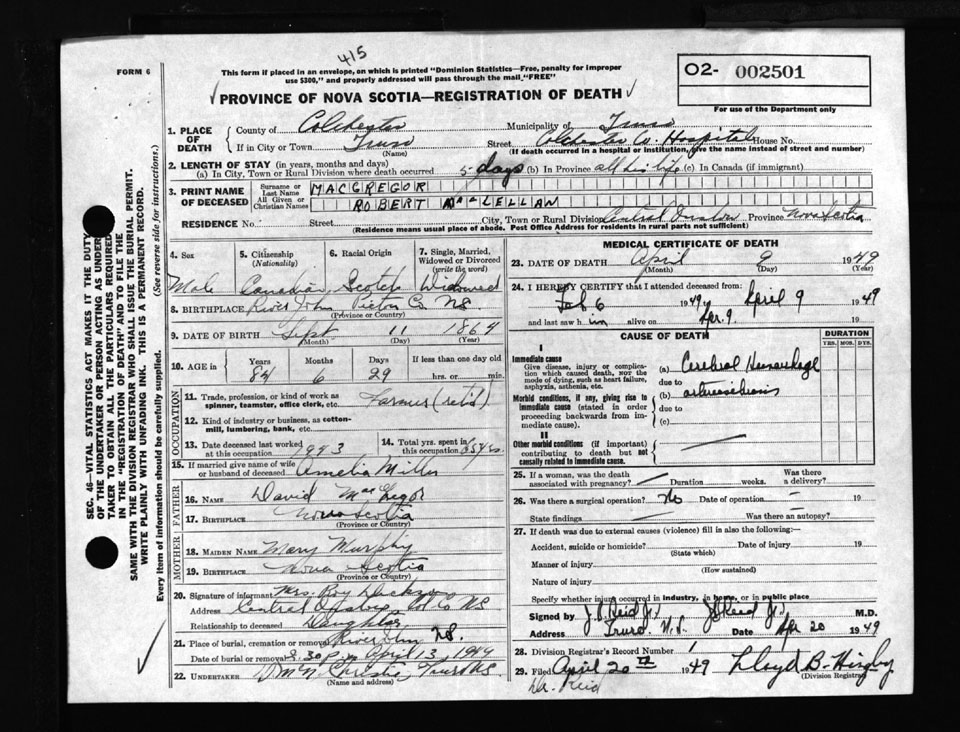 415
FORM 6
This form if placed in an envelope, on which is printed "Dominion Statistics—Free, penalty for improper
use $300," and properly addressed will pass through the mail "FREE"
02- 002501
For use of the Department only
PROVINCE OF NOVA SCOTIA—REGISTRATION OF DEATH
1. PLACE OF DEATH
County of Colchester Municipality of Truro
If in City or Town Truro (Name) Street Colchester Hospital House No.
(If death occurred in a hospital or institution, give the name instead of street and number)
2. LENGTH OF STAY (in years, months and days)
(a) In City, Town or Rural Division where death occurred 5 days (b) In Province all his life (c) In Canada (if immigrant)
3. PRINT NAME OF DECEASED
Surname or Last Name MACGREGOR
All Given or Christian Names ROBERT MacLELLAN
RESIDENCE No. Street City, Town or Rural Division Central Onslow Province Nova Scotia
(Residence means usual place of abode. Post Office Address for residents in rural parts not sufficient)
4. Sex
Male
5. Citizenship (Nationality)
Canadian
6. Racial Origin
Scotch
7. Single, Married, Widowed or Divorced (write the word)
Widowed
8. BIRTHPLACE River John Pictou Co NS
(Province or Country)
9. DATE OF BIRTH Sept 11 1864
(Month) (Day) (Year)
10. AGE in
Years Months Days If less than one day old
84 6 29 hrs. or min.
OCCUPATION
11. Trade, profession, or kind of work as spinner, teamster, office clerk, etc. Farmer (ret'd)
12. Kind of industry or business, as cotton-mill, lumbering, bank, etc.
13. Date deceased last worked at this occupation
14. Total yrs. spent in this occupation
15. If married give name of wife or husband of deceased Amelia Miller
FATHER
16. NAME David MacGregor
17. BIRTHPLACE Nova Scotia
(Province or Country)
MOTHER
18. MAIDEN NAME Mary Murphy
19. BIRTHPLACE Nova Scotia
(Province or Country)
20. Signature of informant Mrs. Roy
Address Central Onslow, Col Co NS
Relationship to deceased Daughter
21. Place of burial, cremation or removal River John NS.
Date of burial or removal 2.30 p.m April 13, 1949
22. UNDERTAKER Christie, Truro NS
(Name and address)
MEDICAL CERTIFICATE OF DEATH
23. DATE OF DEATH April 9 1949
(Month) (Day) (Year)
24. I HEREBY CERTIFY that I attended deceased from:
Feb 6 1949 April 9 1949
and last saw him alive on Apr. 9 19
CAUSE OF DEATH
DURATION
YRS. MOS. DYS.
I
Immediate cause
Give disease, injury or complication which caused death, NOT the mode of dying, such as heart failure, asphyxia, asthenia, etc.
(a) Cerebral Hemorrhage
due to
Morbid conditions, if any, giving rise to immediate cause (stated in order proceeding backwards from immediate cause).
(b) arteriosclerosis
due to
(c)
II
Other morbid conditions (if important) contributing to death but not causally related to immediate cause.
25. If a woman, was the death associated with pregnancy? Duration weeks. Was there a delivery?
26. Was there a surgical operation? No Date of operation — 19
State findings Was there an autopsy?
27. If death was due to external causes (violence) fill in also the following:—
Accident, suicide or homicide? Date of injury 19
(State which)
Manner of injury
(How sustained)
Nature of injury
Specify whether injury occurred in industry, in home, or in public place
Signed by J. Reid Jr. M.D.
Address Truro N.S. Date Apr 20 1949
28. Division Registrar's Record Number 1
29. Filed April 20th 1949 Lloyd B.
(Division Registrar)
Dr. Reid
SEC. 46—VITAL STATISTICS ACT MAKES IT THE DUTY
OF THE UNDERTAKER OR PERSON ACTING AS UNDER-
TAKER TO OBTAIN ALL THE PARTICULARS REQUIRED
IN THE "REGISTRATION OF DEATH" AND TO FILE THE
SAME WITH THE DIVISION REGISTRAR WHO SHALL ISSUE THE BURIAL PERMIT.
WRITE PLAINLY WITH UNFADING INK. THIS IS A PERMANENT RECORD.
Every item of information should be carefully supplied. (See reverse side for instructions.)